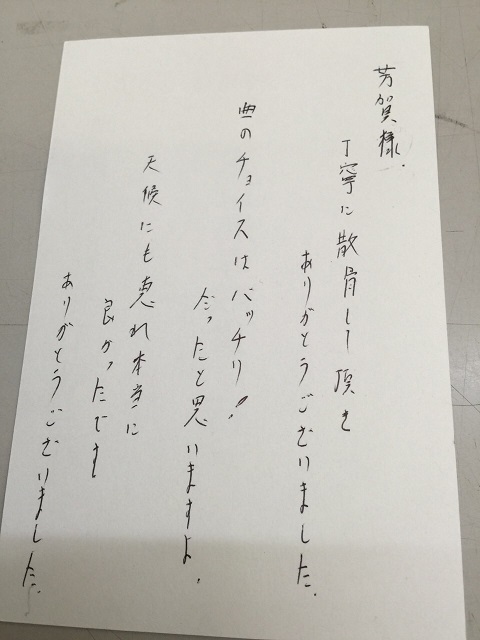 芳賀様.
丁寧に散骨して頂き
ありがとうございました.
曲のチョイスはバッチリ!
だったと思いますよ.
天候にも恵れ本当に
良かったです
ありがとうございました.